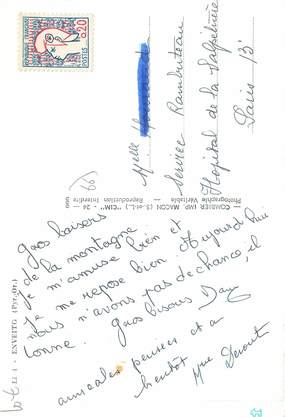 POSTES
0,20
Melle
Service Rambuteau
Hôpital de la Salpêtrière
Paris 13e
COMBIER IMP. MACON (S.-et-L.) "CIM" - 24 -
Photographie Véritable - Reproduction Interdite
Gros baisers
de la montagne
je m'amuse bien et
je me repose bien. Aujourd'hui
nous n'avons pas de chance, il
tonne. Gros bisous Dany
amicales pensées et a
bientôt
Mme
Li 4 - ENVEITG (Pyr.-Or.)